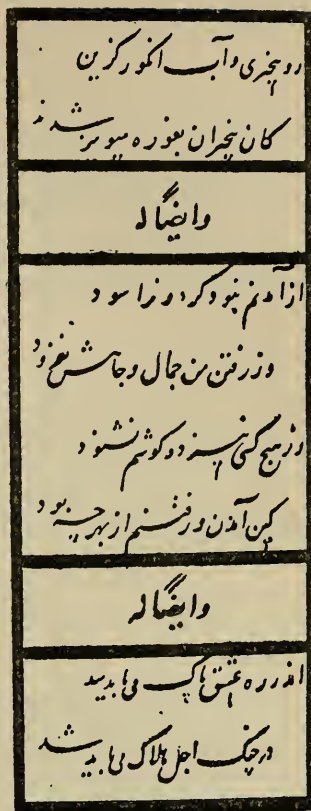 رو بیخبری و آب انگور گزین
کان بیخبران بغوره میویز شدند
وایضاً له
از آمدنم نبود گردون را سود
وز رفتن من جمال و جاهش نفزود
وز هیچ کسی نیز دو گوشم نشنود
کین آمدن و رفتنم از بهر چه بود
وایضاً له
اندر ره عشق پاک می باید شد
در چنگ اجل هلاک می باید شد